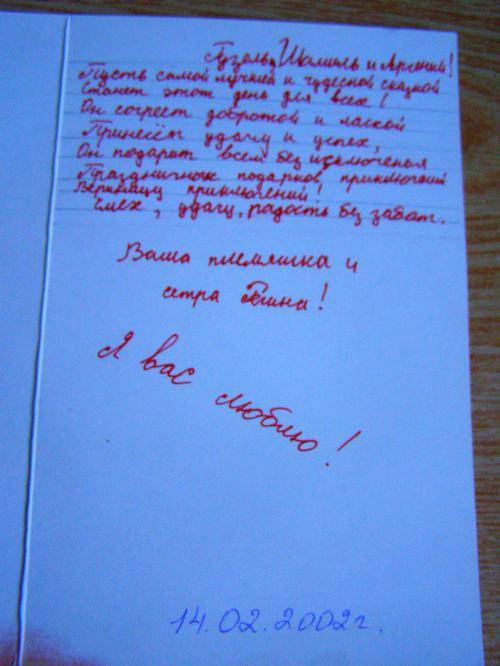 Гузель, Шамиль и Арсений!
Пусть самой лучшей и чудесной сказкой
Станет этот день для всех!
Он согреет добротой и лаской
Принесёт удачу и успех,
Он подарит всем без исключенья
Праздничных подарков, приключений
Вереницу приключений!
Смех, удачу, радость без забот.
Ваша племяшка и
сестра
Я вас люблю!
14.02.2002г.